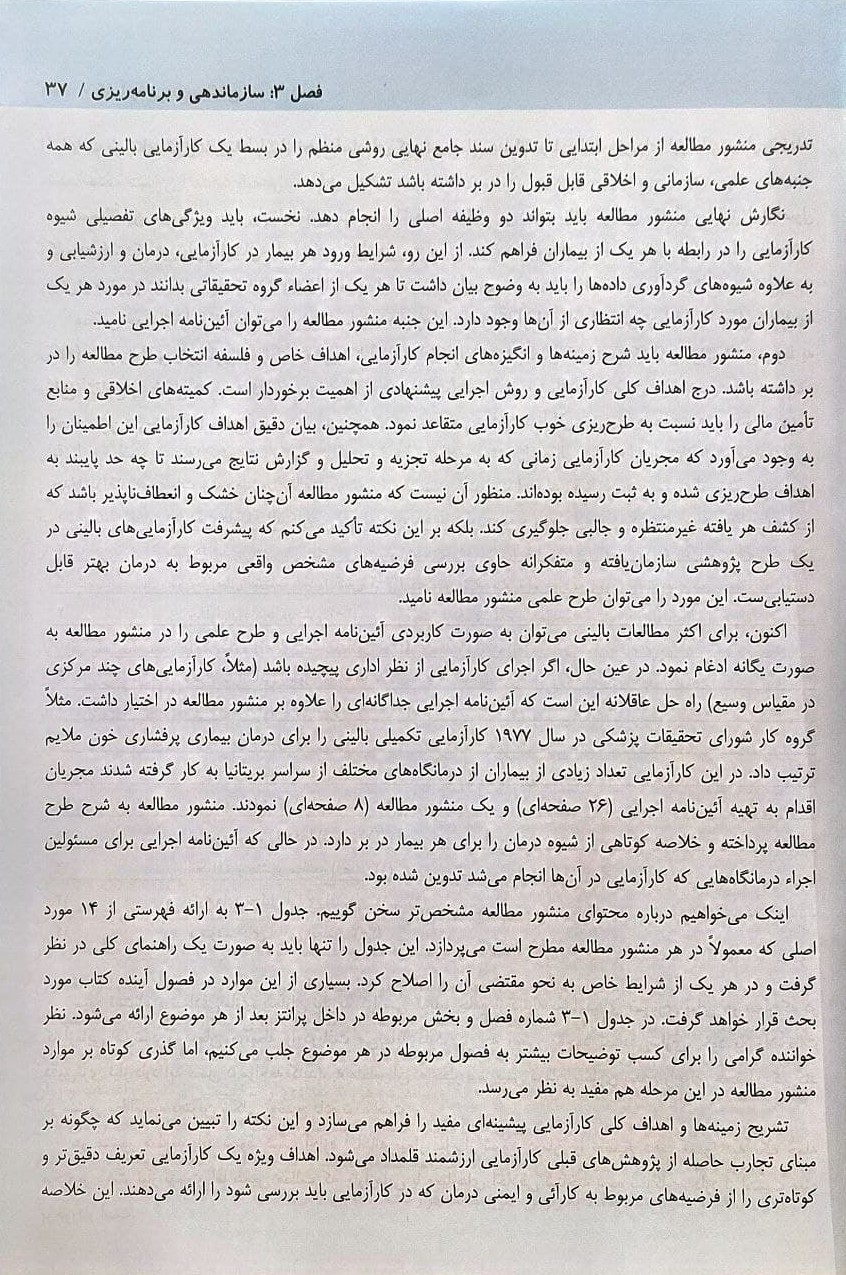 فصل ۳: سازماندهی و برنامه‌ریزی / ۳۷
تدریجی منشور مطالعه از مراحل ابتدایی تا تدوین سند جامع نهایی روشی منظم را در بسط یک کارآزمایی بالینی که همه
جنبه‌های علمی، سازمانی و اخلاقی قابل قبول را در بر داشته باشد تشکیل می‌دهد.
نگارش نهایی منشور مطالعه باید بتواند دو وظیفه اصلی را انجام دهد. نخست، باید ویژگی‌های تفصیلی شیوه
کارآزمایی را در رابطه با هر یک از بیماران فراهم کند. از این رو، شرایط ورود هر بیمار در کارآزمایی، درمان و ارزشیابی و
به علاوه شیوه‌های گردآوری داده‌ها را باید به وضوح بیان داشت تا هر یک از اعضاء گروه تحقیقاتی بدانند در مورد هر یک
از بیماران مورد کارآزمایی چه انتظاری از آن‌ها وجود دارد. این جنبه منشور مطالعه را می‌توان آئین‌نامه اجرایی نامید.
دوم، منشور مطالعه باید شرح زمینه‌ها و انگیزه‌های انجام کارآزمایی، اهداف خاص و فلسفه انتخاب طرح مطالعه را در
بر داشته باشد. درج اهداف کلی کارآزمایی و روش اجرایی پیشنهادی از اهمیت برخوردار است. کمیته‌های اخلاقی و منابع
تأمین مالی را باید نسبت به طرح‌ریزی خوب کارآزمایی متقاعد نمود. همچنین، بیان دقیق اهداف کارآزمایی این اطمینان را
به وجود می‌آورد که مجریان کارآزمایی زمانی که به مرحله تجزیه و تحلیل و گزارش نتایج می‌رسند تا چه حد پایبند به
اهداف طرح‌ریزی شده و به ثبت رسیده بوده‌اند. منظور آن نیست که منشور مطالعه آن‌چنان خشک و انعطاف‌ناپذیر باشد که
از کشف هر یافته غیرمنتظره و جالبی جلوگیری کند. بلکه بر این نکته تأکید می‌کنم که پیشرفت کارآزمایی‌های بالینی در
یک طرح پژوهشی سازمان‌یافته و متفکرانه حاوی بررسی فرضیه‌های مشخص واقعی مربوط به درمان بهتر قابل
دستیابی‌ست. این مورد را می‌توان طرح علمی منشور مطالعه نامید.
اکنون، برای اکثر مطالعات بالینی می‌توان به صورت کاربردی آئین‌نامه اجرایی و طرح علمی را در منشور مطالعه به
صورت یگانه ادغام نمود. در عین حال، اگر اجرای کارآزمایی از نظر اداری پیچیده باشد (مثلاً، کارآزمایی‌های چند مرکزی
در مقیاس وسیع) راه حل عاقلانه این است که آئین‌نامه اجرایی جداگانه‌ای را علاوه بر منشور مطالعه در اختیار داشت. مثلاً
گروه کار شورای تحقیقات پزشکی در سال ۱۹۷۷ کارآزمایی تکمیلی بالینی را برای درمان بیماری پرفشاری خون ملایم
ترتیب داد. در این کارآزمایی تعداد زیادی از بیماران از درمانگاه‌های مختلف از سراسر بریتانیا به کار گرفته شدند مجریان
اقدام به تهیه آئین‌نامه اجرایی (۲۶ صفحه‌ای) و یک منشور مطالعه (۸ صفحه‌ای) نمودند. منشور مطالعه به شرح طرح
مطالعه پرداخته و خلاصه کوتاهی از شیوه درمان را برای هر بیمار در بر دارد. در حالی که آئین‌نامه اجرایی برای مسئولین
اجراء درمانگاه‌هایی که کارآزمایی در آن‌ها انجام می‌شد تدوین شده بود.
اینک می‌خواهیم درباره محتوای منشور مطالعه مشخص‌تر سخن گوییم. جدول ۱-۳ به ارائه فهرستی از ۱۴ مورد
اصلی که معمولاً در هر منشور مطالعه مطرح است می‌پردازد. این جدول را تنها باید به صورت یک راهنمای کلی در نظر
گرفت و در هر یک از شرایط خاص به نحو مقتضی آن را اصلاح کرد. بسیاری از این موارد در فصول آینده کتاب مورد
بحث قرار خواهد گرفت. در جدول ۱-۳ شماره فصل و بخش مربوطه در داخل پرانتز بعد از هر موضوع ارائه می‌شود. نظر
خواننده گرامی را برای کسب توضیحات بیشتر به فصول مربوطه در هر موضوع جلب می‌کنیم، اما گذری کوتاه بر موارد
منشور مطالعه در این مرحله هم مفید به نظر می‌رسد.
تشریح زمینه‌ها و اهداف کلی کارآزمایی پیشینه‌ای مفید را فراهم می‌سازد و این نکته را تبیین می‌نماید که چگونه بر
مبنای تجارب حاصله از پژوهش‌های قبلی کارآزمایی ارزشمند قلمداد می‌شود. اهداف ویژه یک کارآزمایی تعریف دقیق‌تر و
کوتاه‌تری را از فرضیه‌های مربوط به کارآئی و ایمنی درمان که در کارآزمایی باید بررسی شود را ارائه می‌دهند. این خلاصه